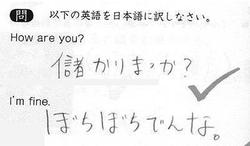 問 以下の英語を日本語に訳しなさい。
How are you?
儲かりまっか?
I'm fine.
ぼちぼちでんな。